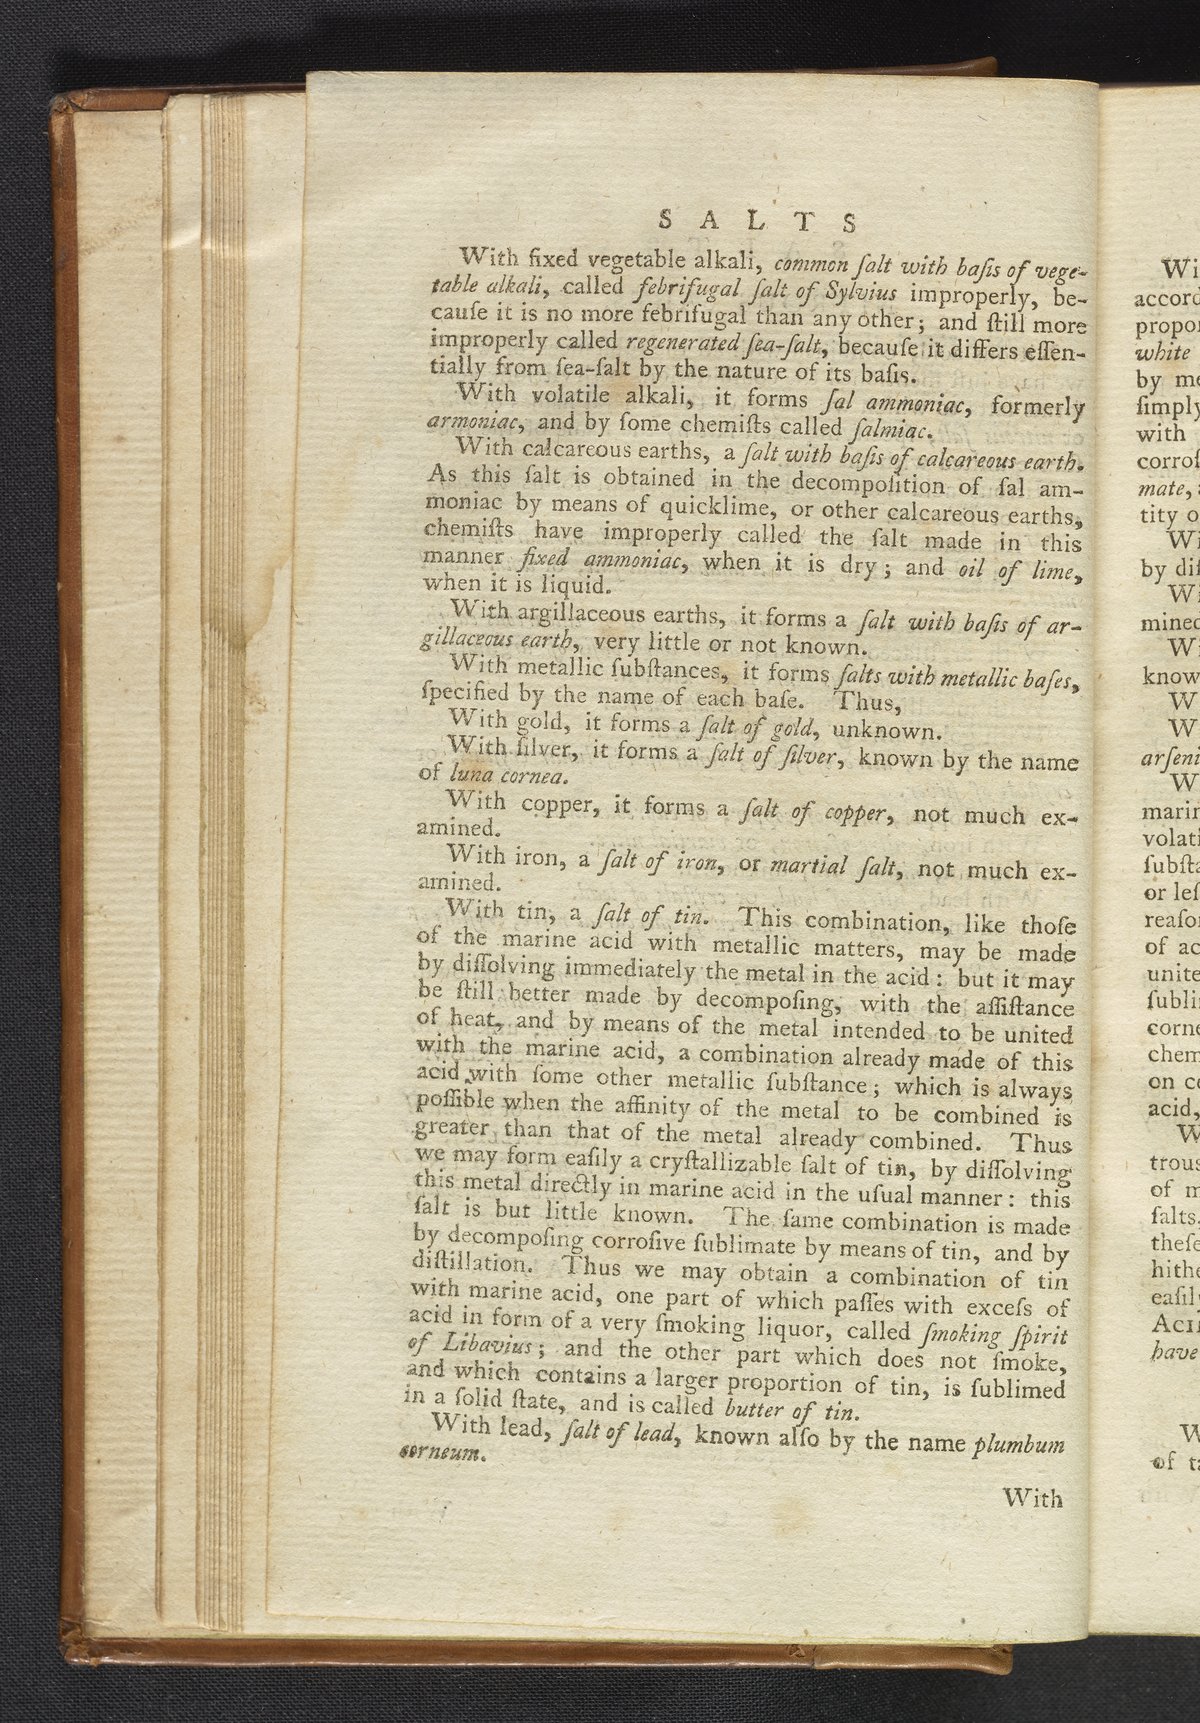 S A L T S
With fixed vegetable alkali, common ſalt with baſis of vege-
table alkali, called febrifugal ſalt of Sylvius improperly, be-
cauſe it is no more febrifugal than any other; and ſtill more
improperly called regenerated ſea-ſalt, becauſe it differs eſſen-
tially from ſea-ſalt by the nature of its baſis.
With volatile alkali, it forms ſal ammoniac, formerly
armoniac, and by ſome chemiſts called ſalmiac.
With calcareous earths, a ſalt with baſis of calcareous earth.
As this ſalt is obtained in the decompoſition of ſal am-
moniac by means of quicklime, or other calcareous earths,
chemiſts have improperly called the ſalt made in this
manner fixed ammoniac, when it is dry; and oil of lime,
when it is liquid.
With argillaceous earths, it forms a ſalt with baſis of ar-
gillaceous earth, very little or not known.
With metallic ſubſtances, it forms ſalts with metallic baſes,
ſpecified by the name of each baſe. Thus,
With gold, it forms a ſalt of gold, unknown.
With ſilver, it forms a ſalt of ſilver, known by the name
of luna cornea.
With copper, it forms a ſalt of copper, not much ex-
amined.
With iron, a ſalt of iron, or martial ſalt, not much ex-
amined.
With tin, a ſalt of tin. This combination, like thoſe
of the marine acid with metallic matters, may be made
by diſſolving immediately the metal in the acid: but it may
be ſtill better made by decompoſing, with the aſſiſtance
of heat, and by means of the metal intended to be united
with the marine acid, a combination already made of this
acid with ſome other metallic ſubſtance; which is always
poſſible when the affinity of the metal to be combined is
greater than that of the metal already combined. Thus
we may form eaſily a cryſtallizable ſalt of tin, by diſſolving
this metal directly in marine acid in the uſual manner: this
ſalt is but little known. The ſame combination is made
by decompoſing corroſive ſublimate by means of tin, and by
diſtillation. Thus we may obtain a combination of tin
with marine acid, one part of which paſſes with exceſs of
acid in form of a very ſmoking liquor, called ſmoking ſpirit
of Libavius; and the other part which does not ſmoke,
and which contains a larger proportion of tin, is ſublimed
in a ſolid ſtate, and is called butter of tin.
With lead, ſalt of lead, known alſo by the name plumbum
corneum.
With
Wi
accord
propor
white
by me
ſimply
with
corroſ
mate,
tity o
Wi
by diſ
Wi
mined
Wi
know
W
W
arſeni
W
marin
volati
ſubſta
or leſ
reaſo
of ac
unite
ſubli
corne
chem
on co
acid,
W
trous
of m
ſalts.
theſe
hithe
eaſil
ACI
have
W
of ta